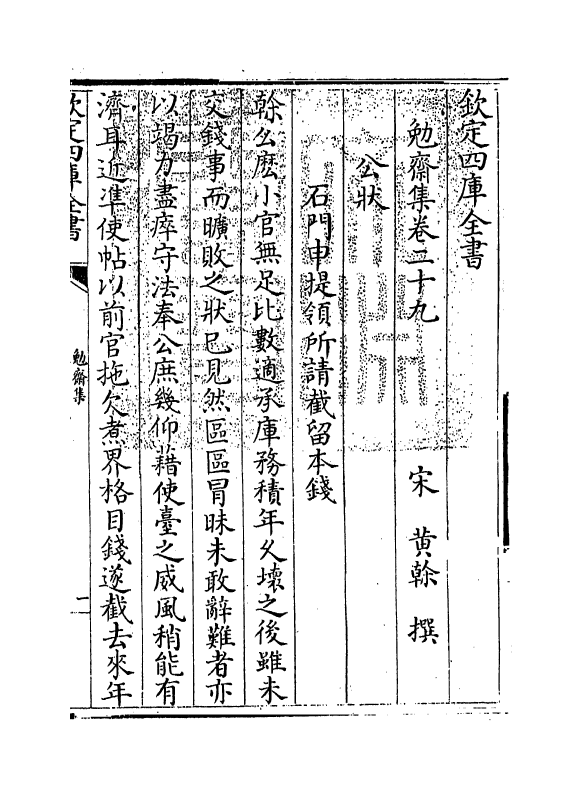 欽定四庫全書
勉齋集卷二十九
宋　黄榦　撰
公狀
石門申提領所請截留本錢
榦幺麽小官無足比數適承庫務積年乆壞之後雖未
交錢事而曠敗之狀已見然區區冒昧未敢辭難者亦
以竭力盡瘁守法奉公庶幾仰藉使臺之威風稍能有
濟耳近準使帖以前官拖欠煮界格目錢遂截去來年
欽定四庫全書
勉齋集